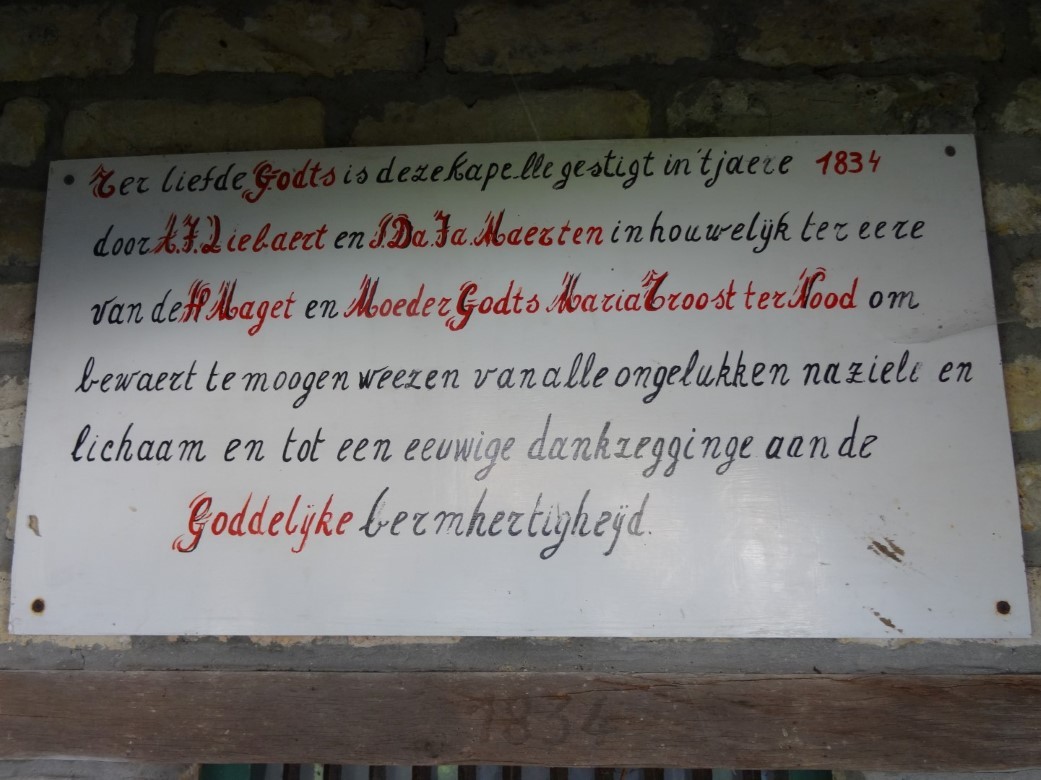 Ter liefde Godts is deze kapelle gestigt in 't jaere 1834
door A.F. Liebaert en I Da Ja Maerten in houwelijk ter eere
van de H Maget en Moeder Godts Maria Troost ter Nood om
bewaert te moogen weezen van alle ongelukken na ziele en
lichaam en tot een eeuwige dankzegginge aan de
Goddelijke bermhertigheÿd.
1834